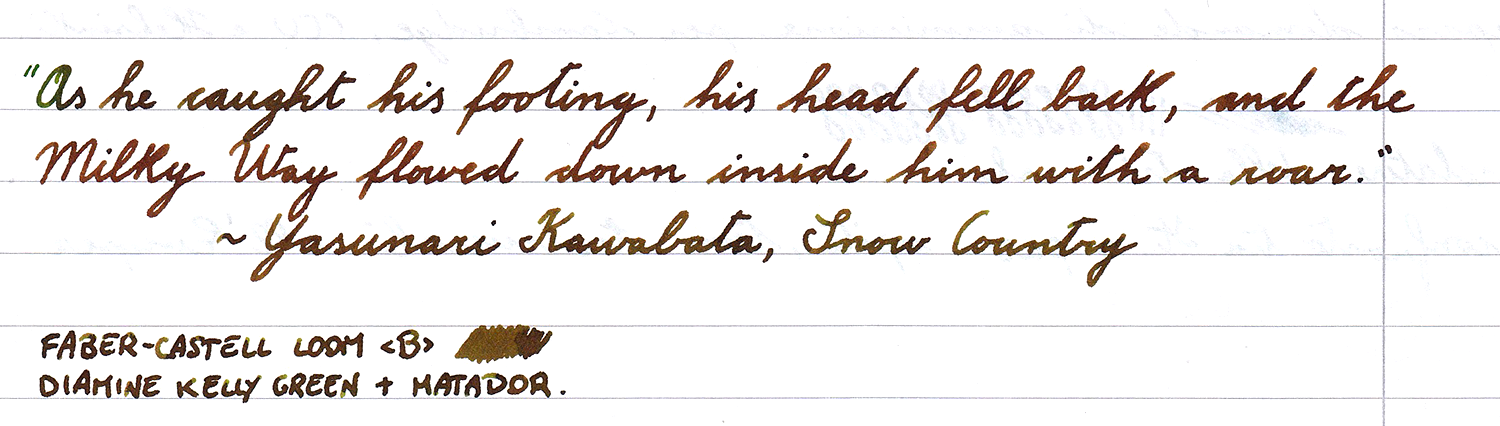 "As he caught his footing, his head fell back, and the
Milky Way flowed down inside him with a roar."
~ Yasunari Kawabata, Snow Country
FABER-CASTELL LOOM <B>
DIAMINE KELLY GREEN + MATADOR.